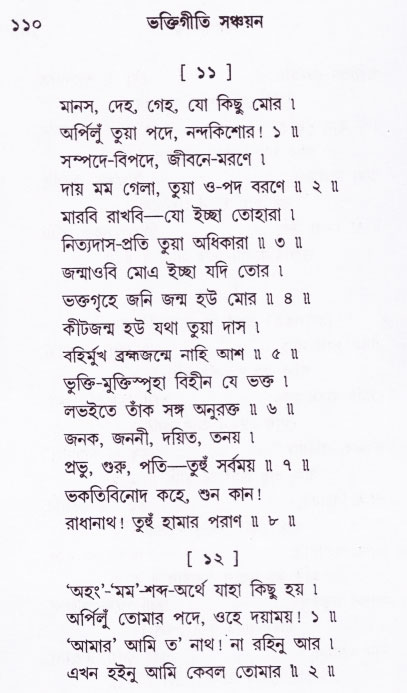 ১১০ ভক্তিগীতি সঞ্চয়ন
[ ১১ ]
মানস, দেহ, গেহ, যো কিছু মোর ।
অর্পিলুঁ তুয়া পদে, নন্দকিশোর! ১ ॥
সম্পদে-বিপদে, জীবনে-মরণে ।
দায় মম গেলা, তুয়া ও-পদ বরণে ॥ ২ ॥
মারবি রাখবি—যো ইচ্ছা তোহারা ।
নিত্যদাস-প্রতি তুয়া অধিকারা ॥ ৩ ॥
জন্মাওবি মোএ ইচ্ছা যদি তোর ।
ভক্তগৃহে জনি জন্ম হউ মোর ॥ ৪ ॥
কীটজন্ম হউ যথা তুয়া দাস ।
বহির্মুখ ব্রহ্মজন্মে নাহি আশ ॥ ৫ ॥
ভুক্তি-মুক্তিস্পৃহা বিহীন যে ভক্ত ।
লভইতে তাঁক সঙ্গ অনুরক্ত ॥ ৬ ॥
জনক, জননী, দয়িত, তনয় ।
প্রভু, গুরু, পতি—তুহুঁ সর্বময় ॥ ৭ ॥
ভকতিবিনোদ কহে, শুন কান!
রাধানাথ! তুহুঁ হামার পরাণ ॥ ৮ ॥
[ ১২ ]
‘অহং’-‘মম’-শব্দ-অর্থে যাহা কিছু হয় ।
অর্পিলুঁ তোমার পদে, ওহে দয়াময়! ১ ॥
‘আমার’ আমি ত’ নাথ! না রহিনু আর ।
এখন হইনু আমি কেবল তোমার ॥ ২ ॥